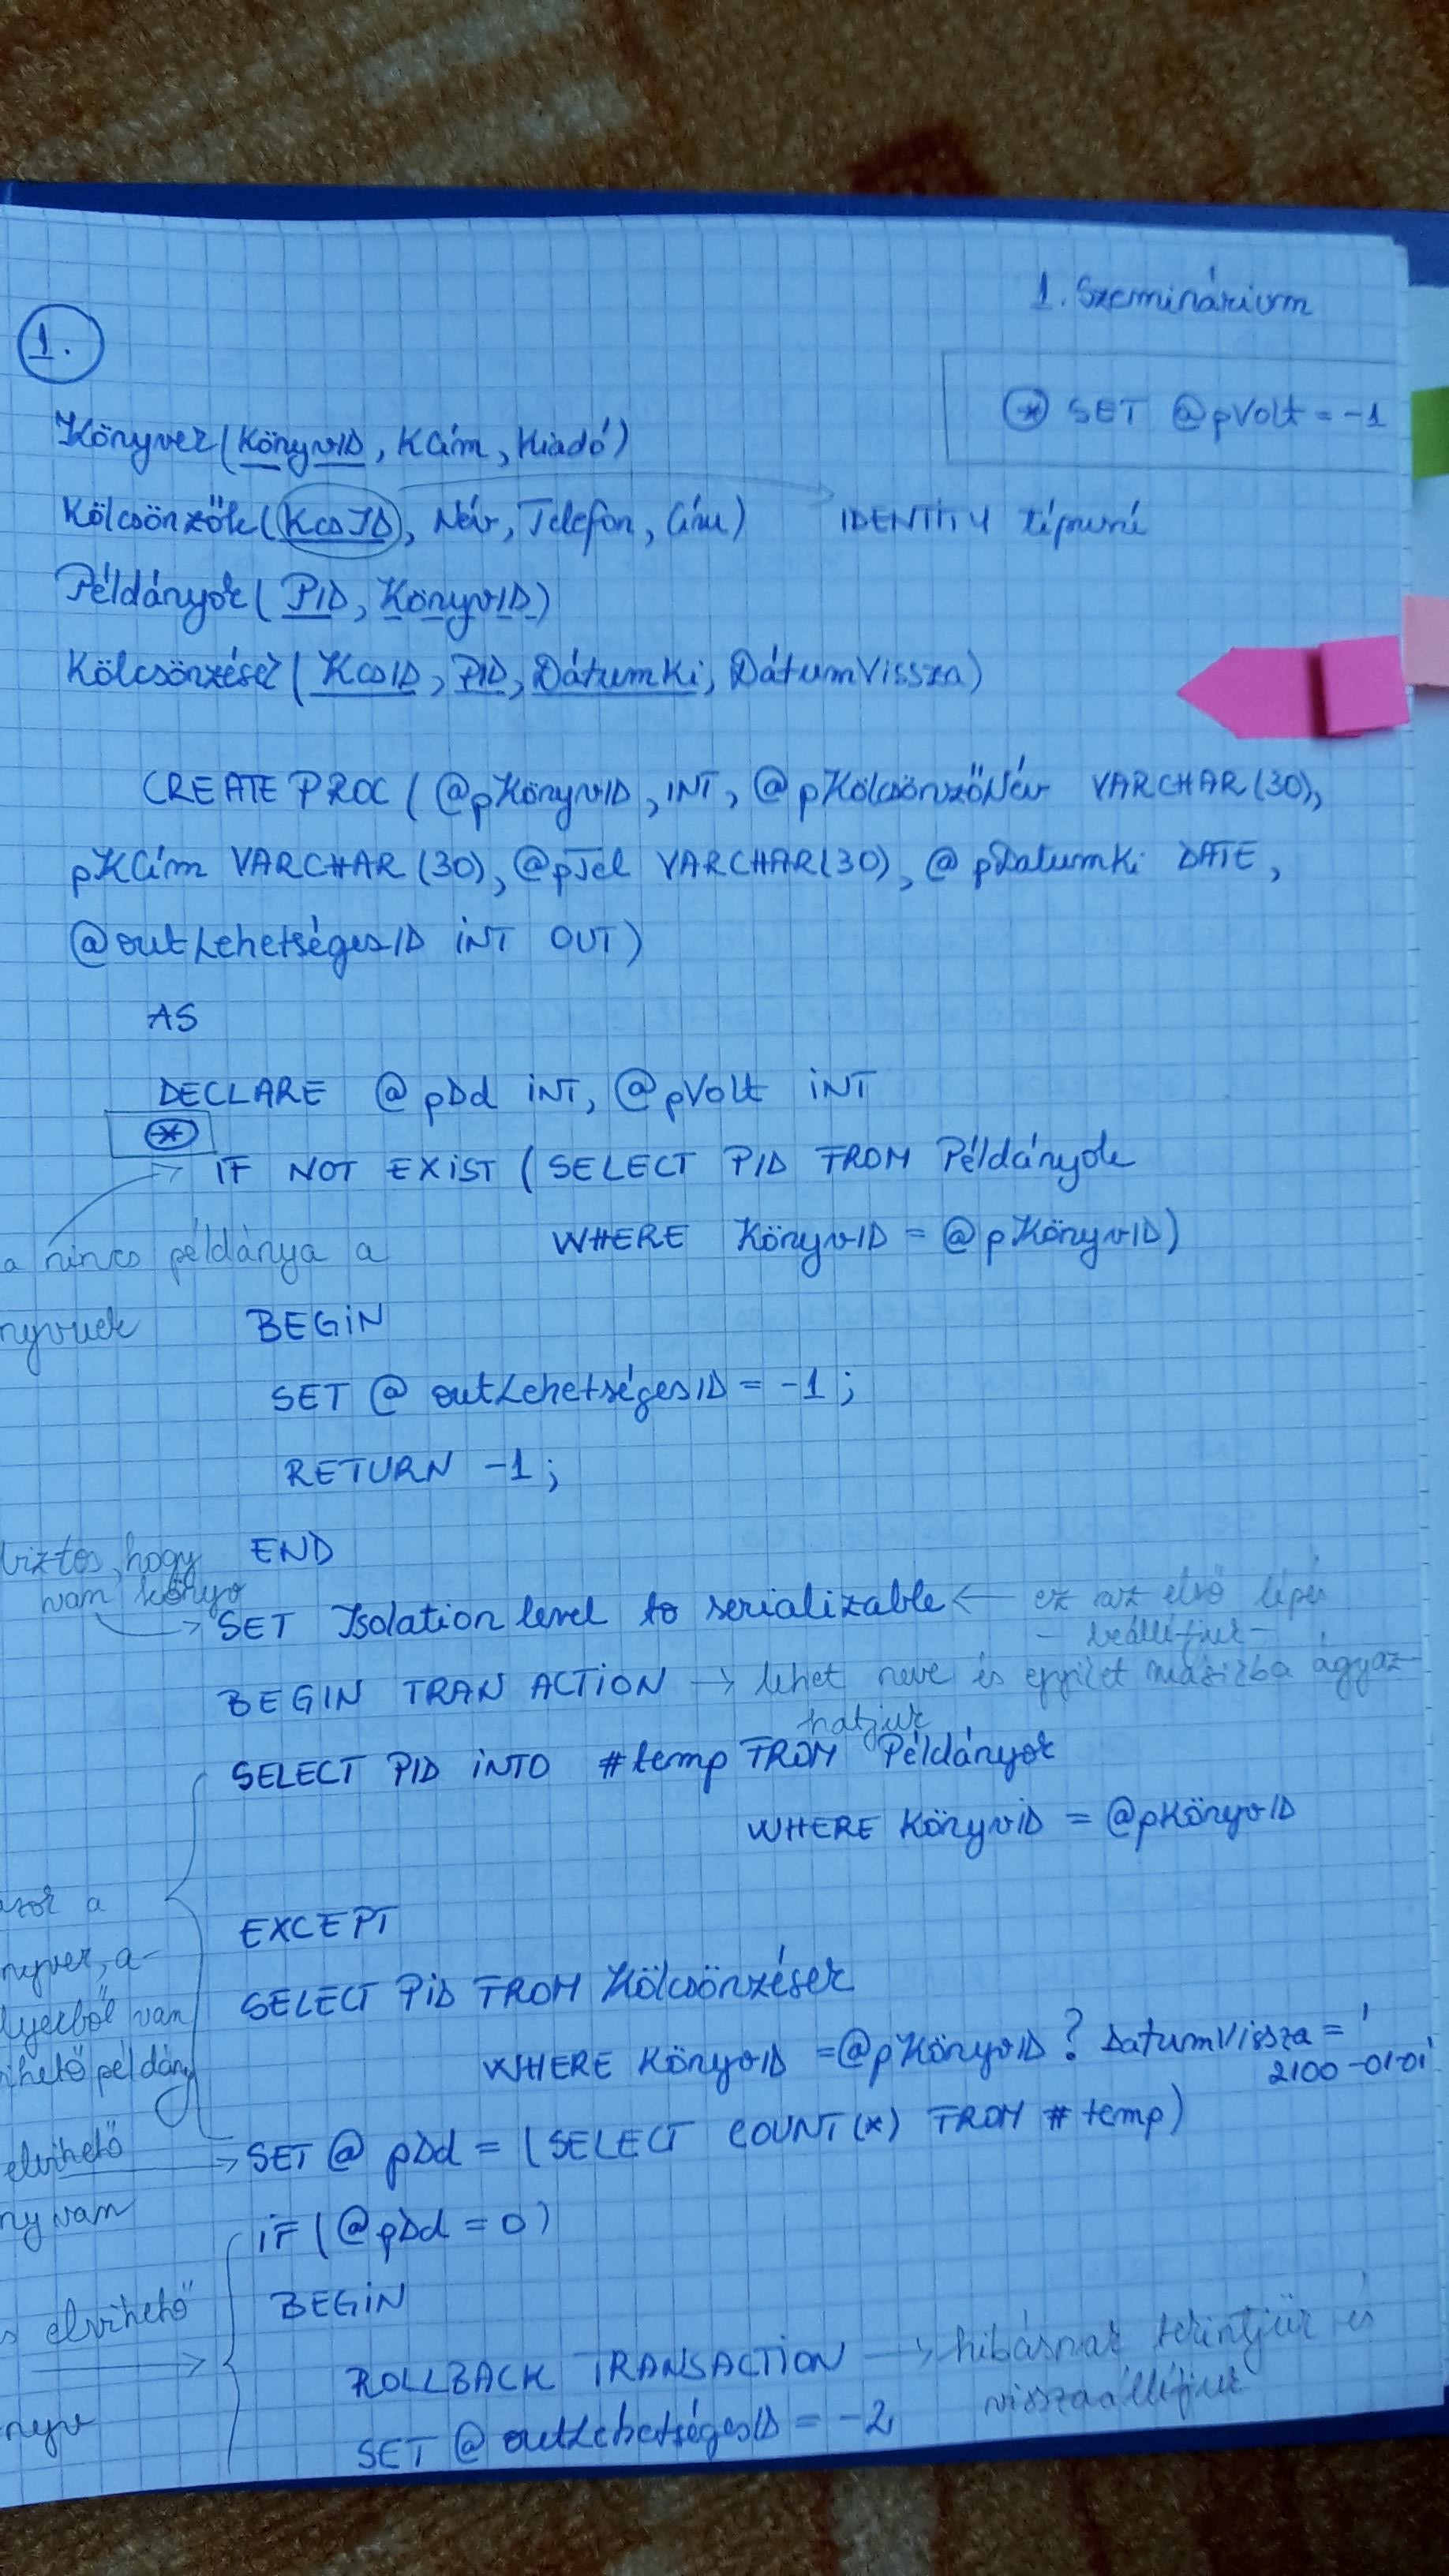 1. Szeminárium
1.
⊛ SET @pVolt = -1
Könyvek(KönyvID, KCím, Kiadó)
Kölcsönzők(KcsID, Név, Telefon, Cím) IDENTITY típusú
Példányok(PID, KönyvID)
Kölcsönzések(KcsID, PID, DátumKi, DátumVissza)
CREATE PROC (@pKönyvID, INT, @pKölcsönzőNév VARCHAR(30),
pKCím VARCHAR(30), @pTel VARCHAR(30), @pDatumKi DATE,
@outLehetségesID INT OUT)
AS
DECLARE @pDd INT, @pVolt INT
⊛
IF NOT EXIST (SELECT PID FROM Példányok
a nincs példánya a WHERE KönyvID = @pKönyvID)
nyvnek BEGIN
SET @outLehetségesID = -1;
RETURN -1;
biztos, hogy END
van könyv
SET Isolation level to serializable ← ez az első lépés
- beállítjuk -
BEGIN TRAN ACTION → lehet neve és egyiket másikba ágyaz-
hatjuk
SELECT PID INTO #temp FROM Példányok
WHERE KönyvID = @pKönyvID
azok a
EXCEPT
nyvek, a-
SELECT PID FROM Kölcsönzések
lyekből van
WHERE KönyvID = @pKönyvID ? DatumVissza = '
2100-01-01'
ihető példány
SET @pDd = (SELECT COUNT(*) FROM #temp)
elvihető
ny van
IF (@pDd = 0)
BEGIN
s elvihető
ROLLBACK TRANSACTION → hibásnak tekintjük és
visszaállítjuk
nyv
SET @outLehetségesID = -2